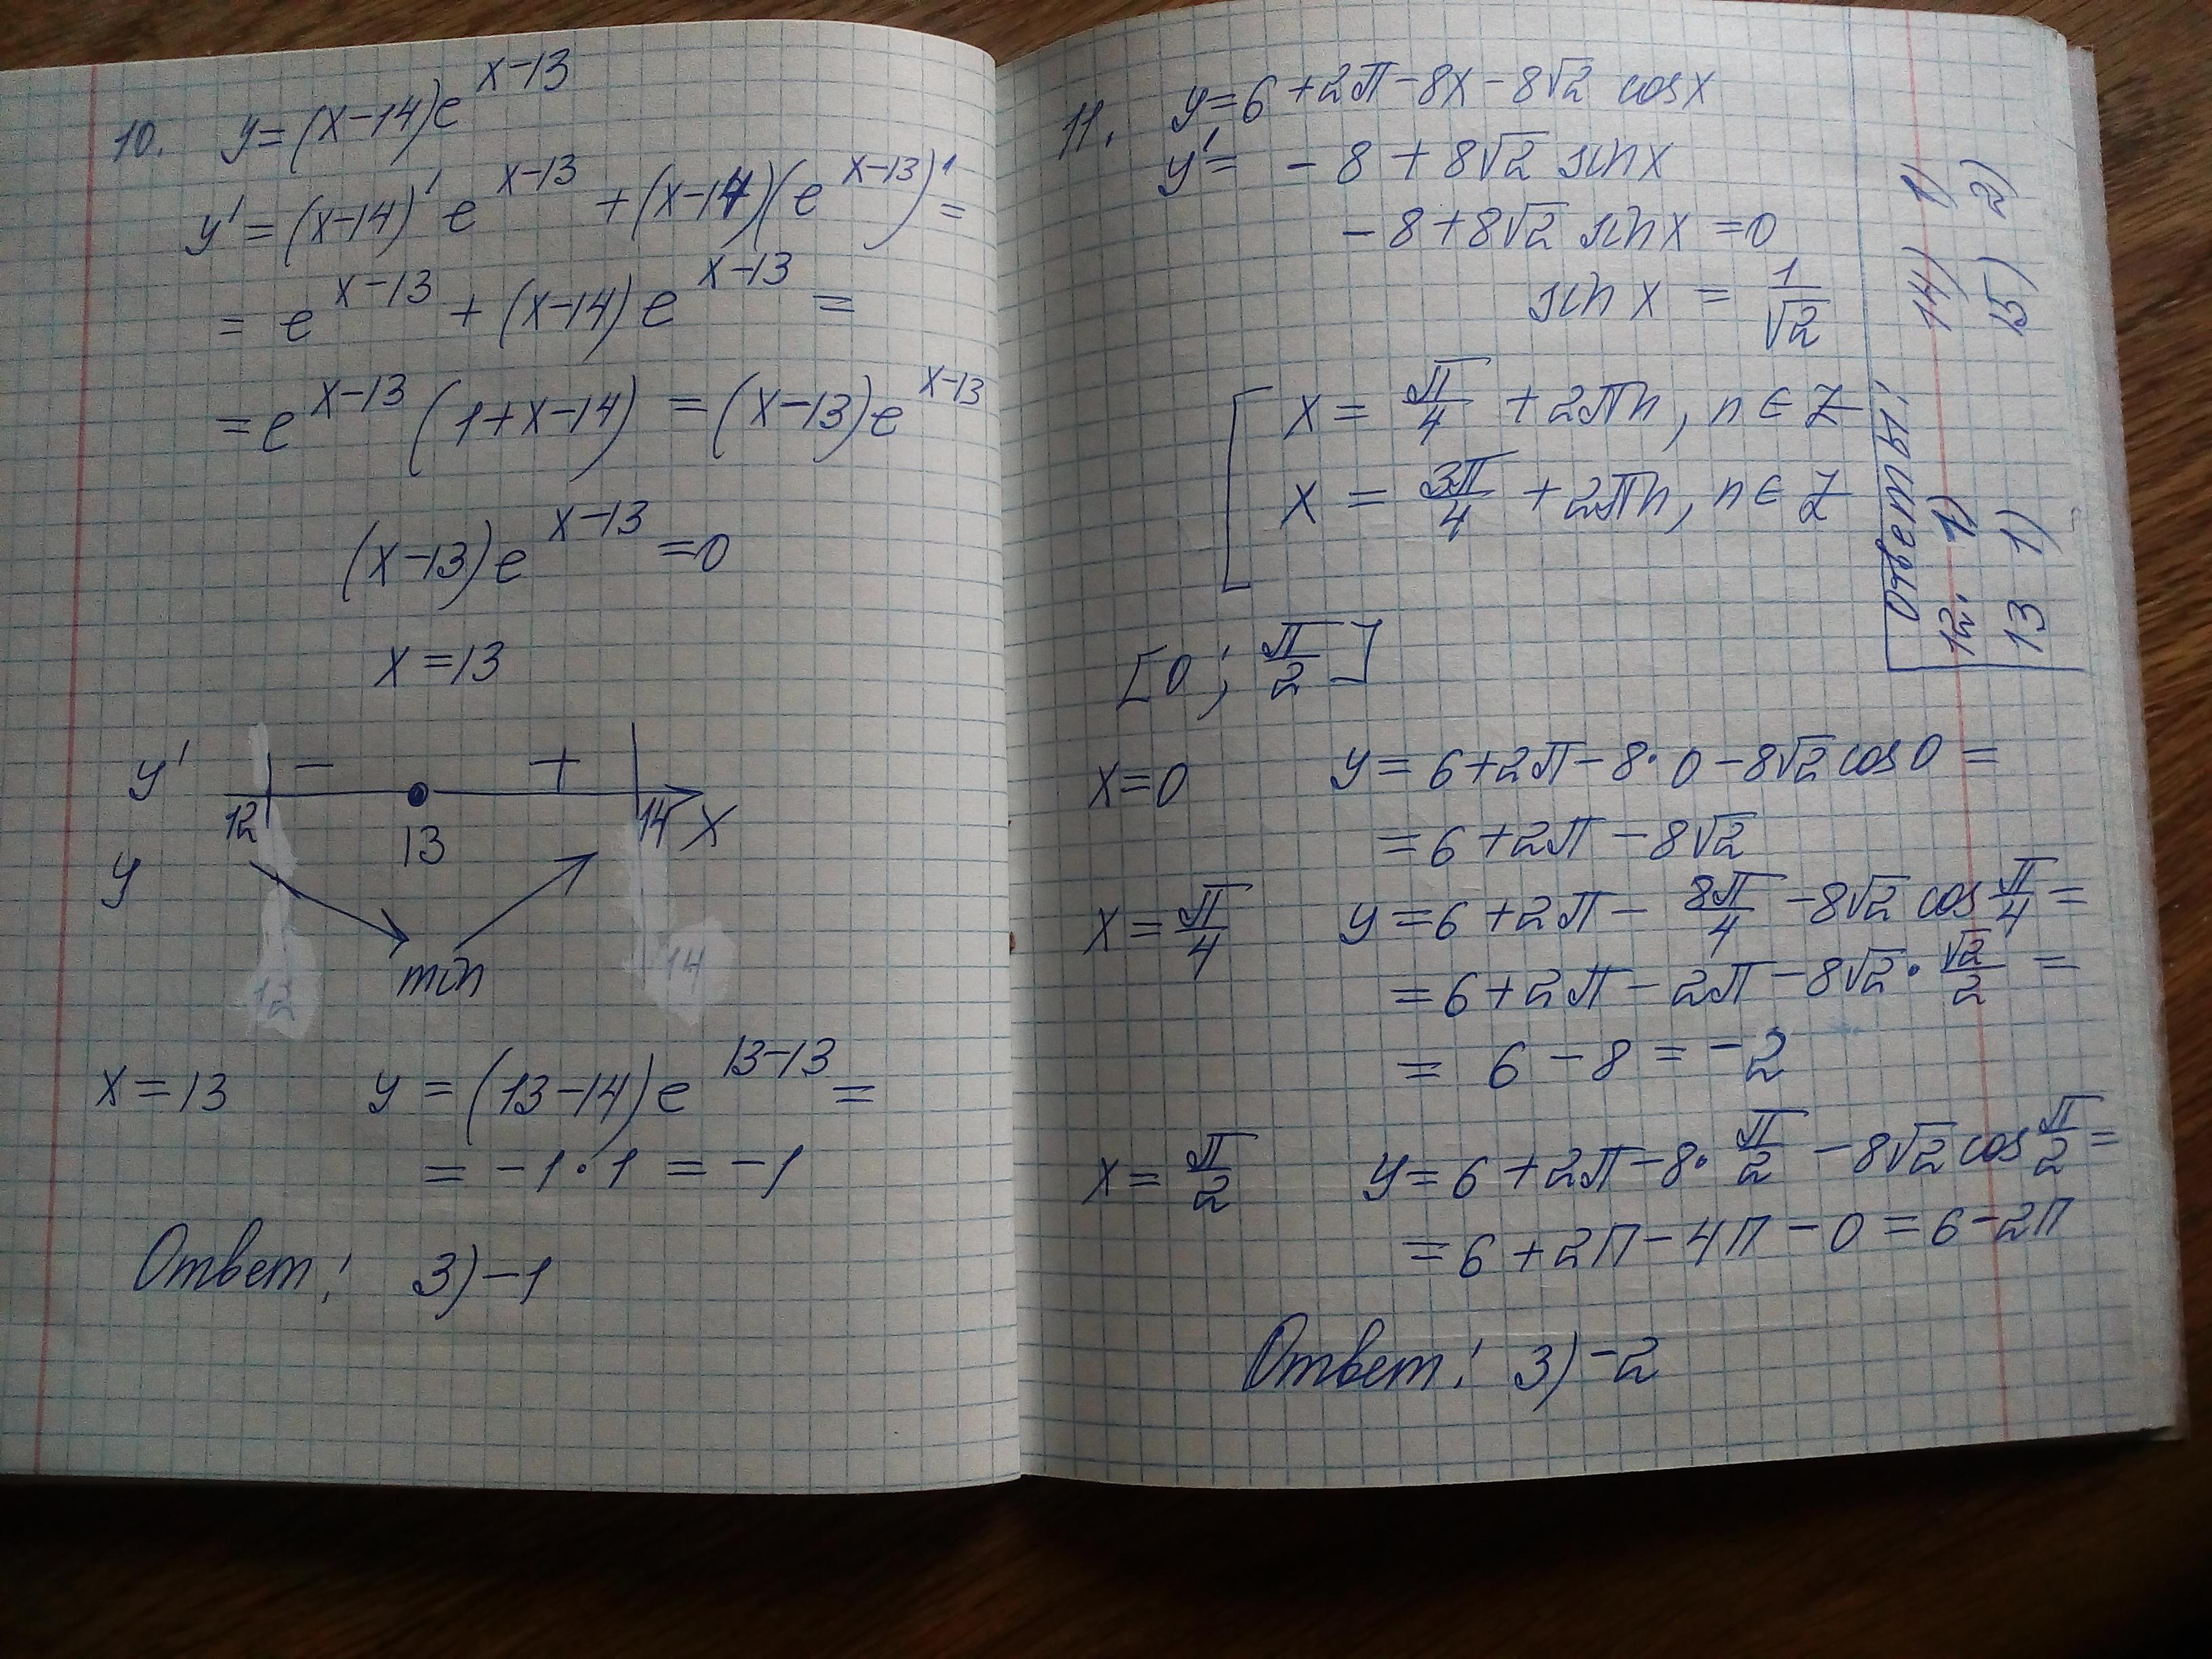 10. y=(x-14)e^{x-13}
y'=(x-14)'e^{x-13}+(x-14)(e^{x-13})'=
=e^{x-13}+(x-14)e^{x-13}=
=e^{x-13}(1+x-14)=(x-13)e^{x-13}
(x-13)e^{x-13}=0
x=13
y' − +
12 13 14 x
y
min
12 14
x=13 y=(13-14)e^{13-13}=
=-1·1=-1
Ответ: 3)-1
11. y=6+2π-8x-8√2 cosx
y'= -8+8√2 sinx
-8+8√2 sinx=0
sinx = 1/√2
[ x= π/4 +2πn, n∈Z
x= 3π/4 +2πn, n∈Z
[0; π/2]
x=0 y=6+2π-8·0-8√2cos0=
=6+2π-8√2
x=π/4 y=6+2π- 8π/4 -8√2 cos π/4=
=6+2π-2π-8√2·√2/2=
= 6-8=-2
x=π/2 y=6+2π-8·π/2 -8√2cos π/2=
=6+2π-4π-0=6-2π
Ответ: 3)-2
Ответы:
12. 1) 14) 1)
13 1) 15) 2)